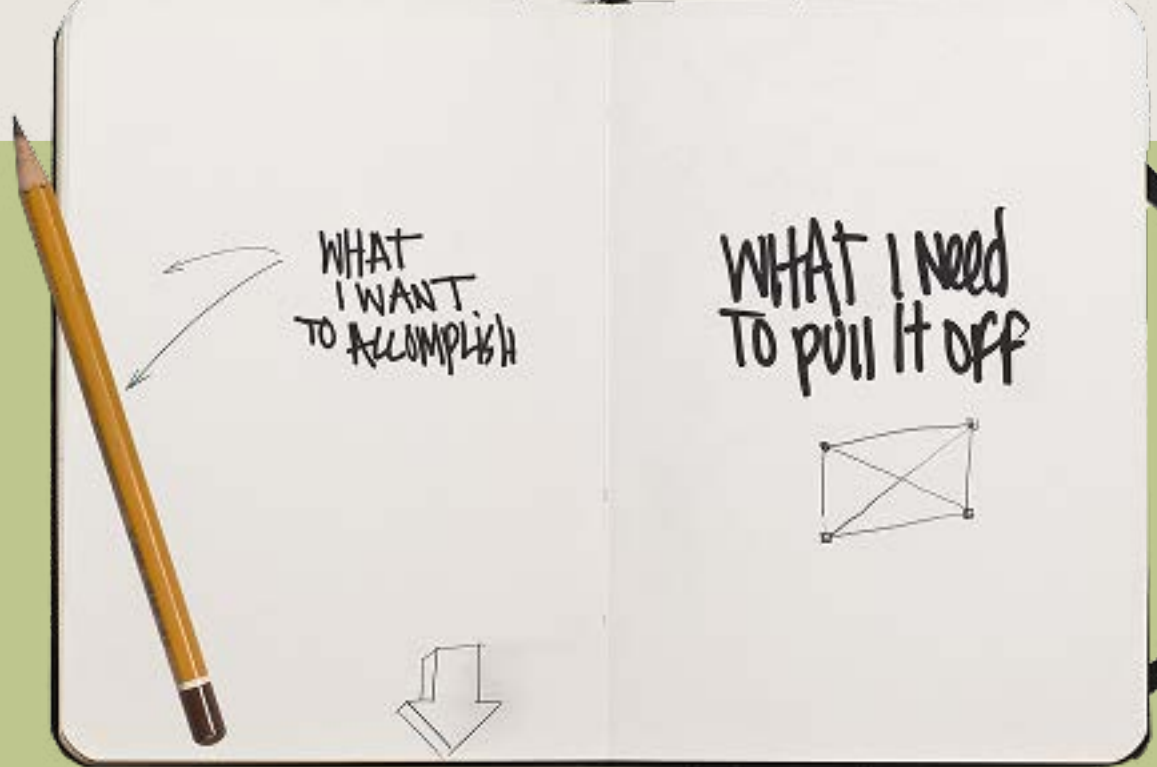 WHAT
I WANT
TO ACCOMPLISH
WHAT I NEED
TO PULL IT OFF